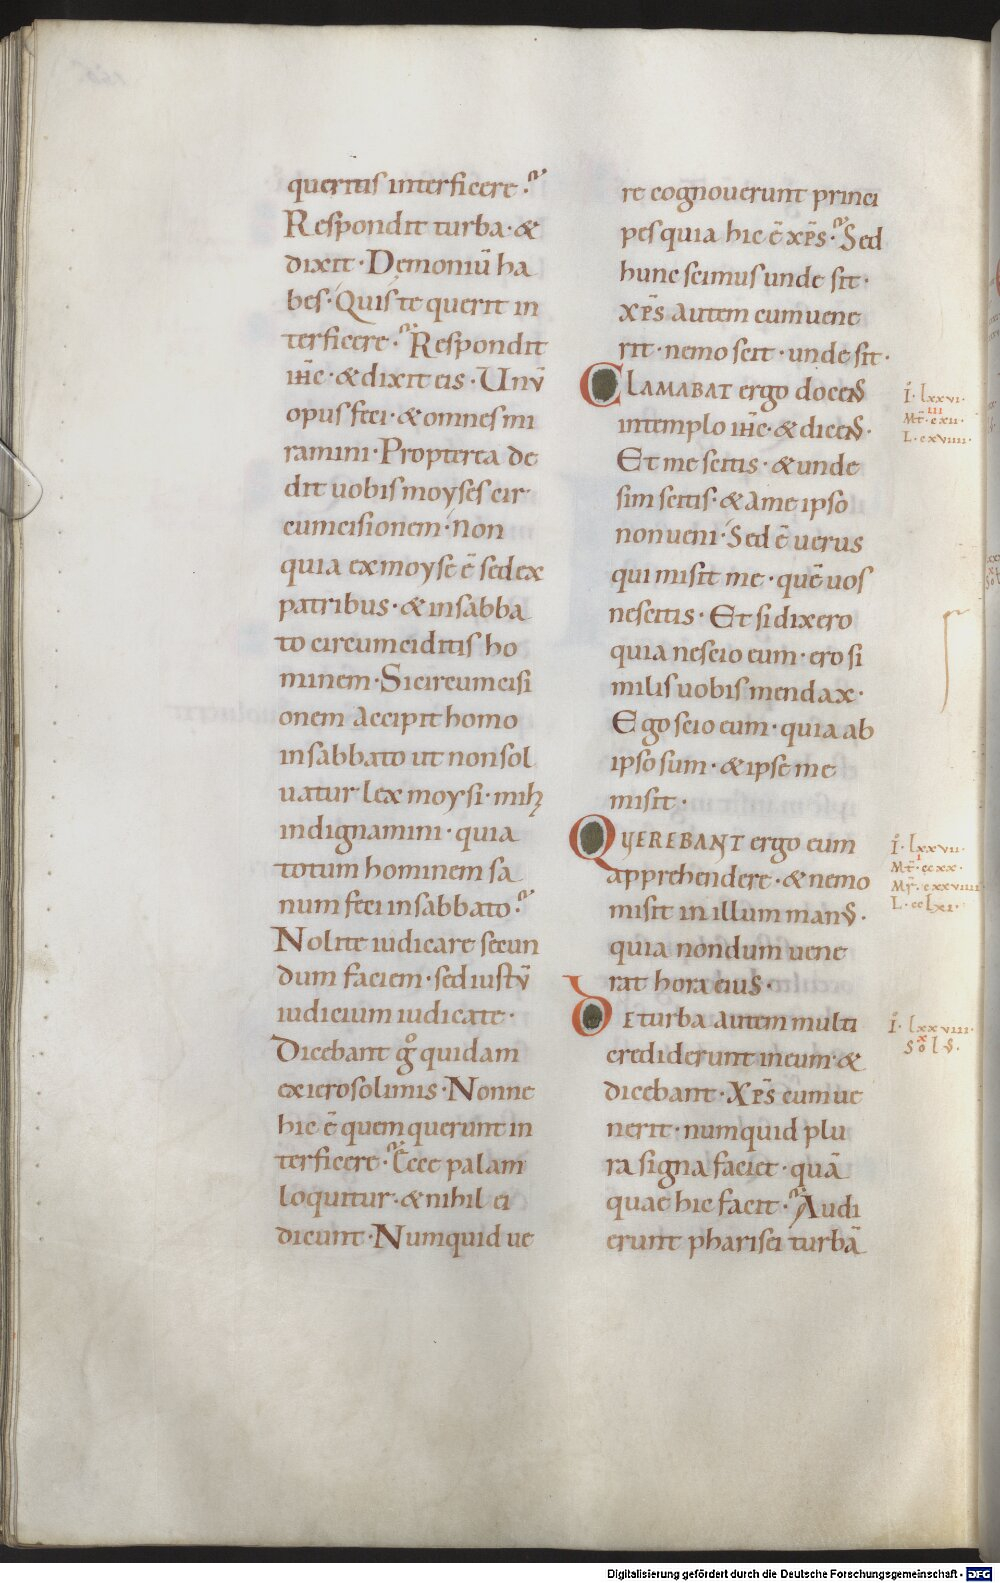 queritis interficere·
Respondit turba·&
dixit·Demoniū ha
bes·Quis te querit in
terficere·Respondit
ihc·&dixit eis·Unū
opus feci·&omnes mi
ramini·Propterea de
dit uobis moyses cir
cumcisionem·Non
quia ex moyse ē sed ex
patribus·&in sabba
to circumciditis ho
minem·Si circumcisi
onem accipit homo
in sabbato ut non sol
uatur lex moysi·mihi
indignamini·quia
totum hominem sa
num feci in sabbato·
Nolite iudicare secun
dum faciem·sed iustū
iudicium iudicate·
Dicebant gͦ quidam
ex ierosolimis·Nonne
hic ē quem querunt in
terficere·Ecce palam
loquitur·&nihil ei
dicunt·Numquid ue
re cognouerunt princi
pes quia hic ē xp̄s·Sed
hunc scimus unde sit·
xp̄s autem cum uene
rit·nemo scit·unde sit·
CLAMABAT ergo docens
in templo ihc·&dicens·
Et me scitis·&unde
sim scitis·&a me ipso
non ueni·Sed ē uerus
qui misit me·quē uos
nescitis·Et si dixero
quia nescio eum·ero si
milis uobis mendax·
Ego scio eum·quia ab
ipso sum·&ipse me
misit·
QUEREBANT ergo eum
apprehendere·&nemo
misit in illum manus·
quia nondum uene
rat hora eius·
DE turba autem multi
crediderunt in eum·&
dicebant·Xp̄s cum ue
nerit·numquid plu
ra signa faciet·quā
quae hic facit·Audi
erunt pharisei turbā
I·lxxvi·
III
Mt·cxii·
L·cxviiii·
I·lxxvii·
Mt·ccxx·
Mr·cxxviiii
L·cclxi·
I·lxxviii·
x
Solus·
Digitalisierung gefördert durch die Deutsche Forschungsgemeinschaft - DFG